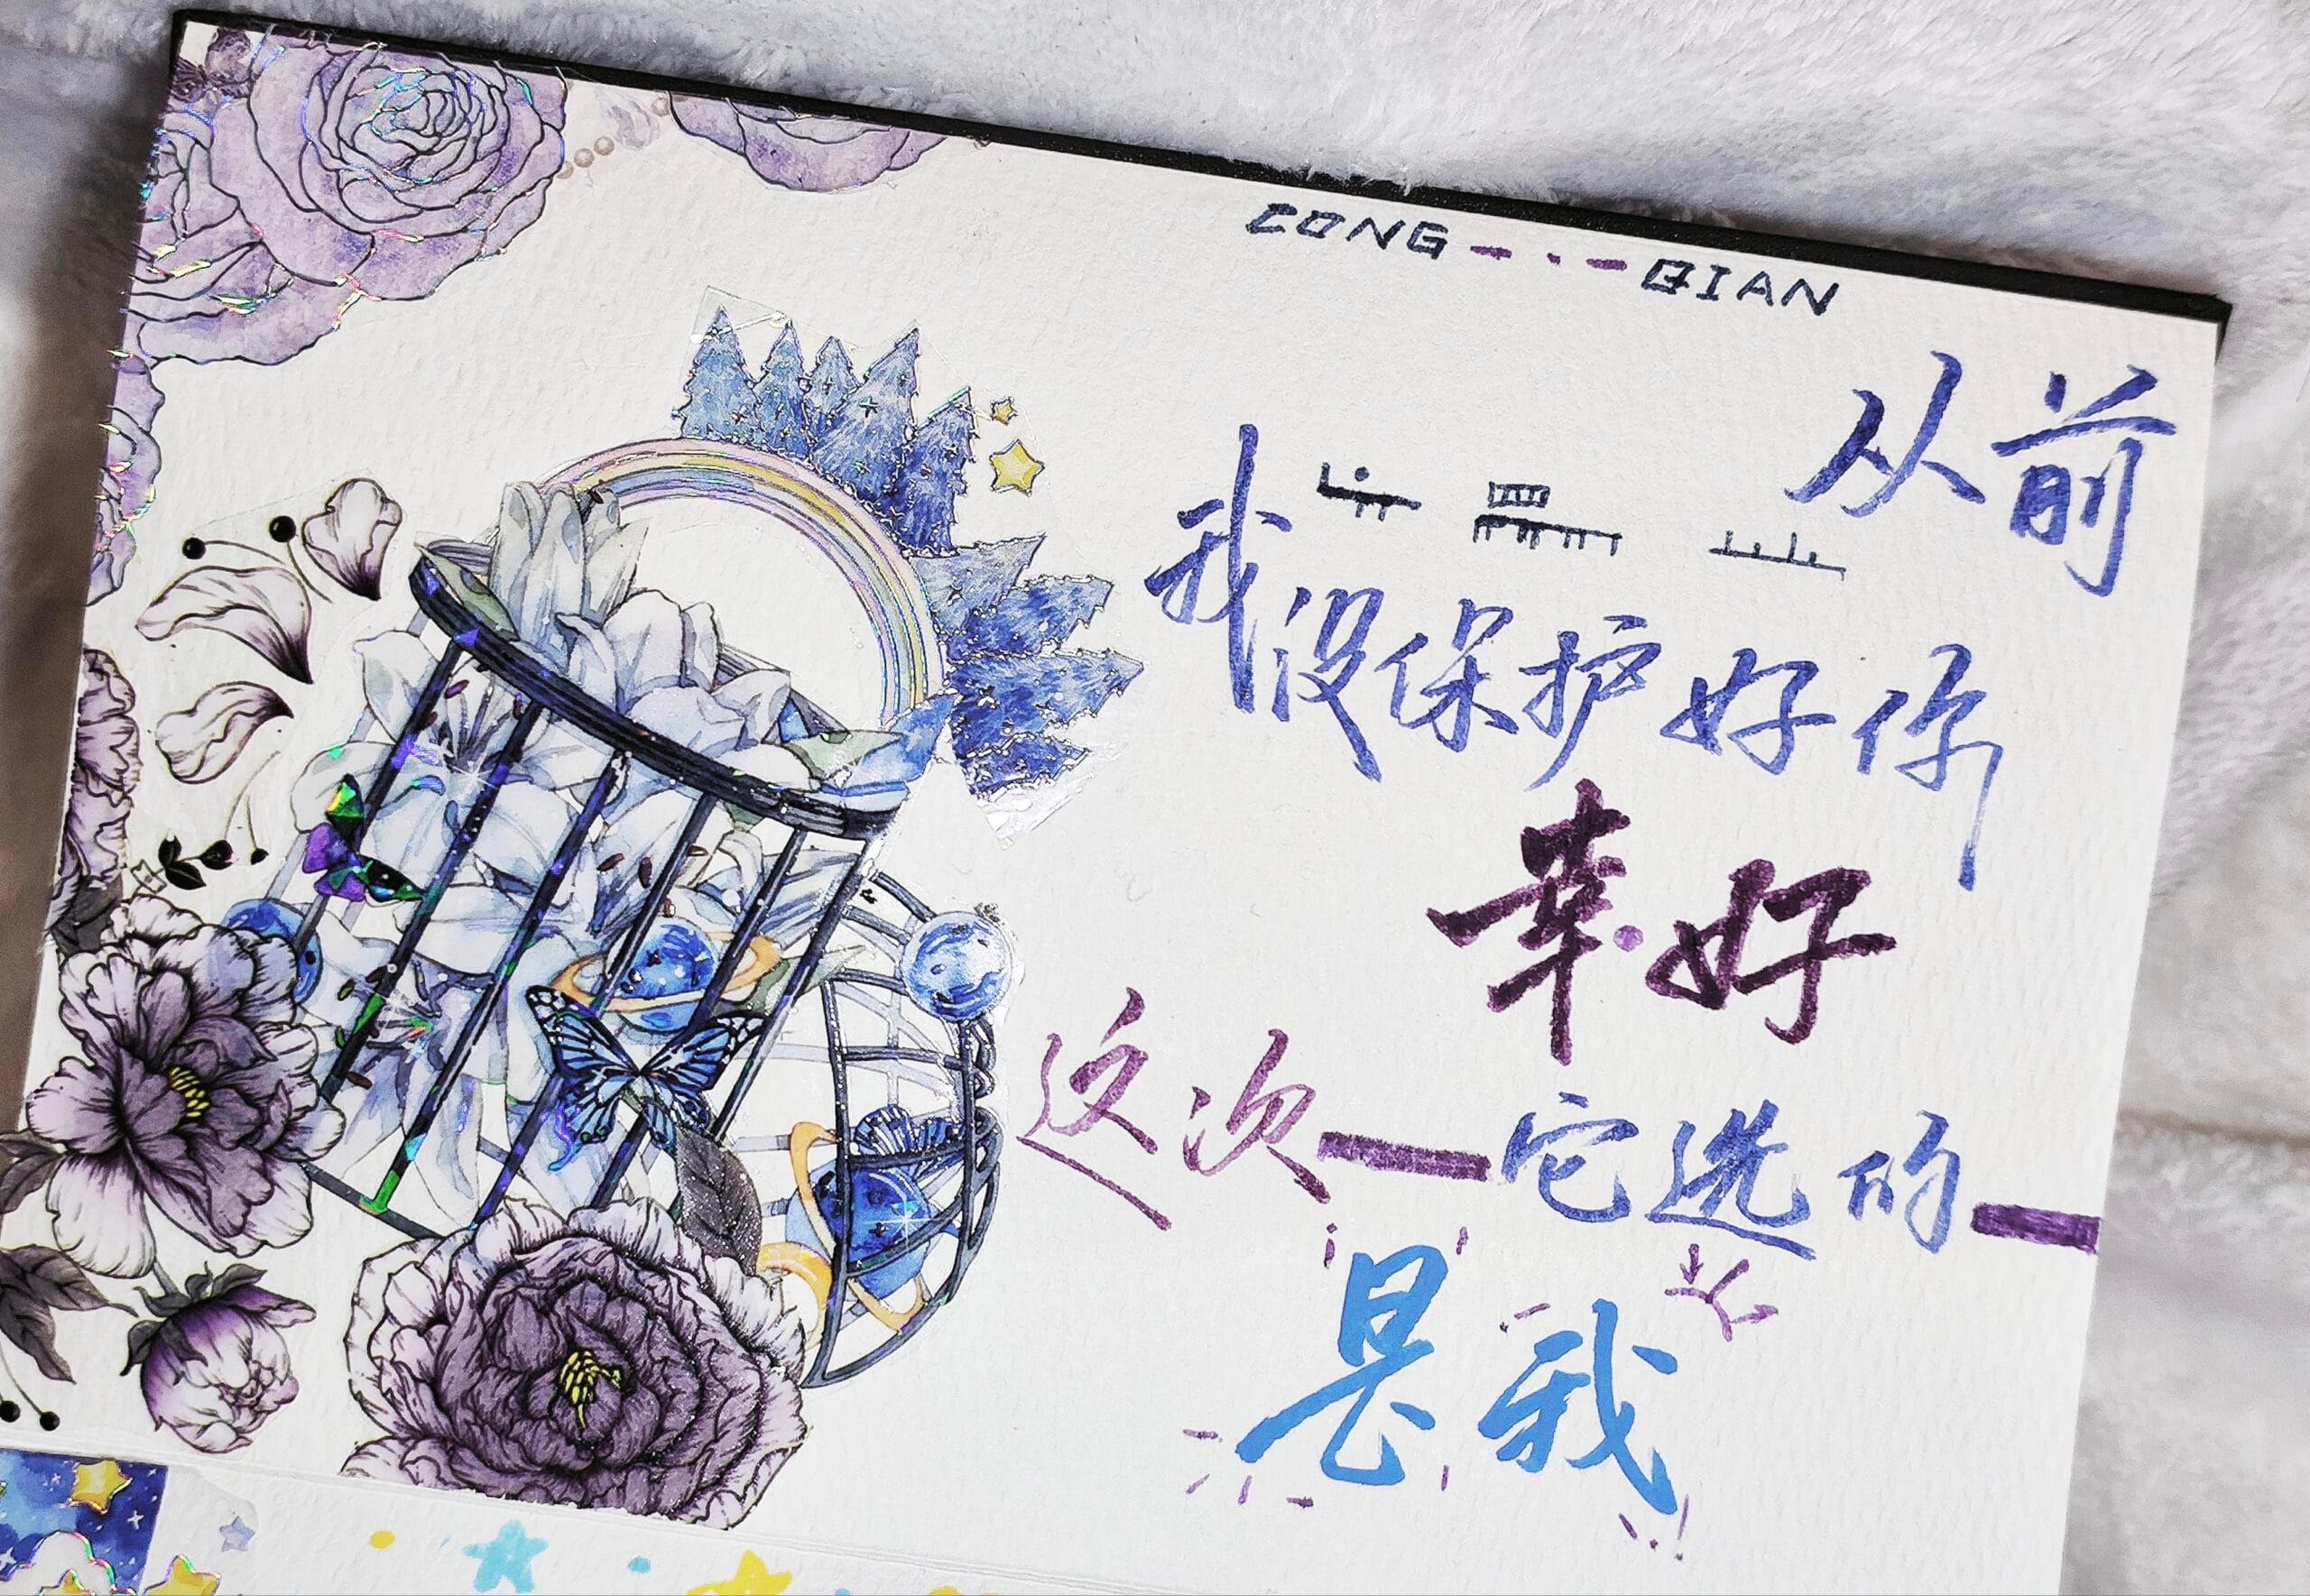 CONG--·-QIAN
从前
我没保护好你
幸·好
这次—它选的—
是我